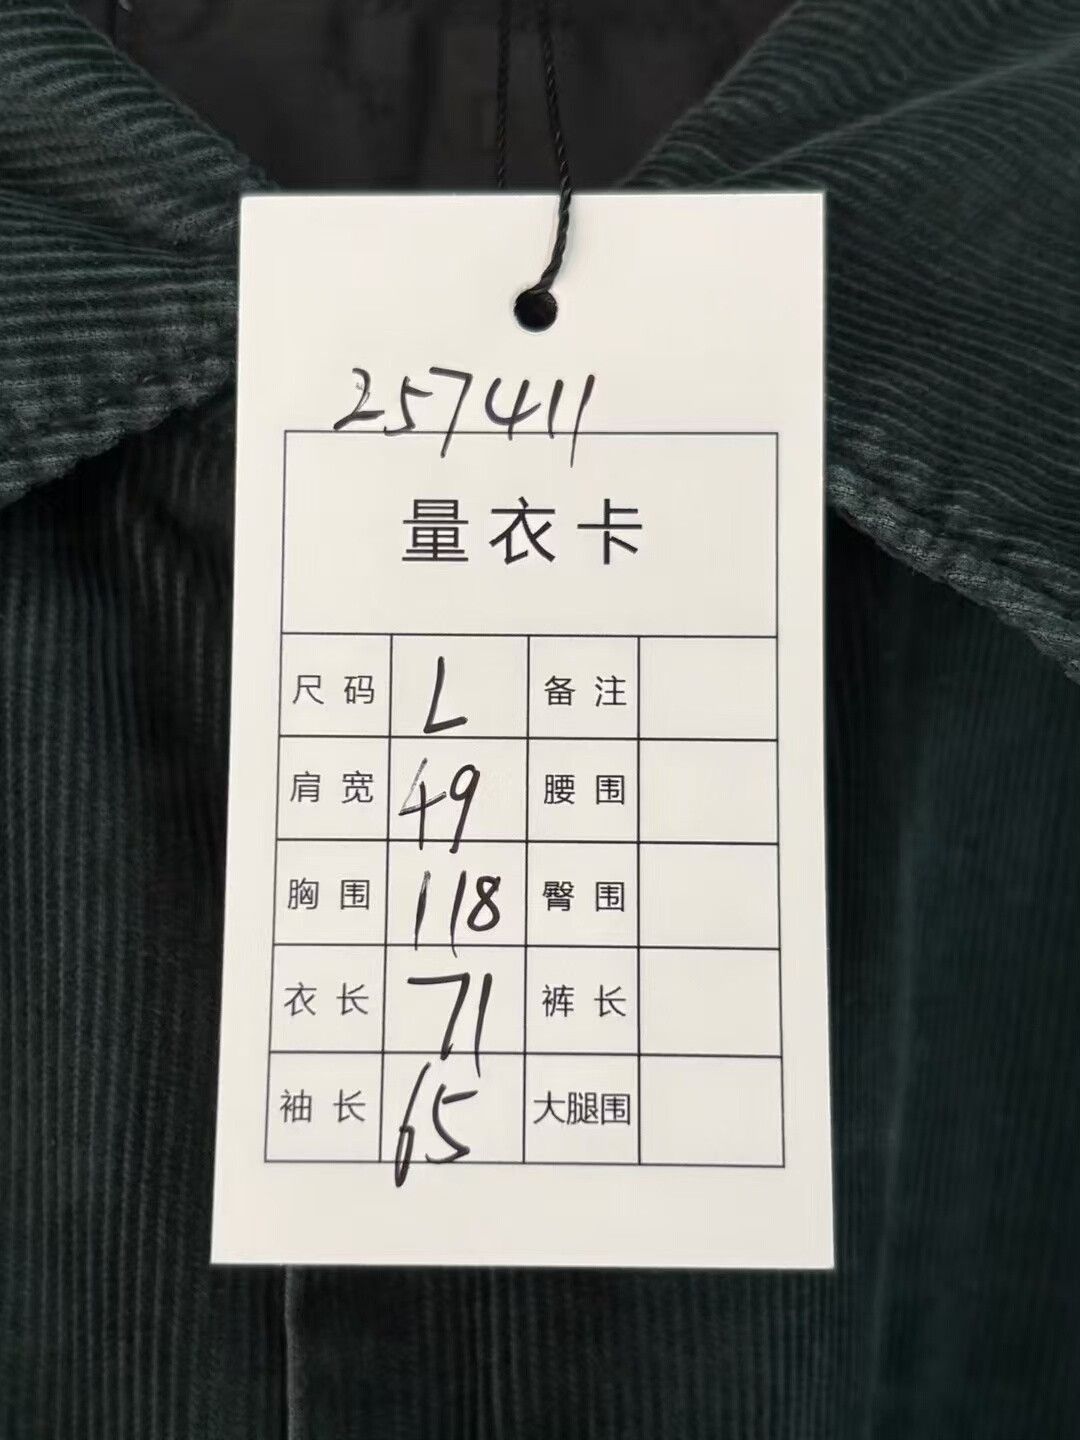 257411
量衣卡
尺码 L 备注
肩宽 49 腰围
胸围 118 臀围
衣长 71 裤长
袖长 65 大腿围